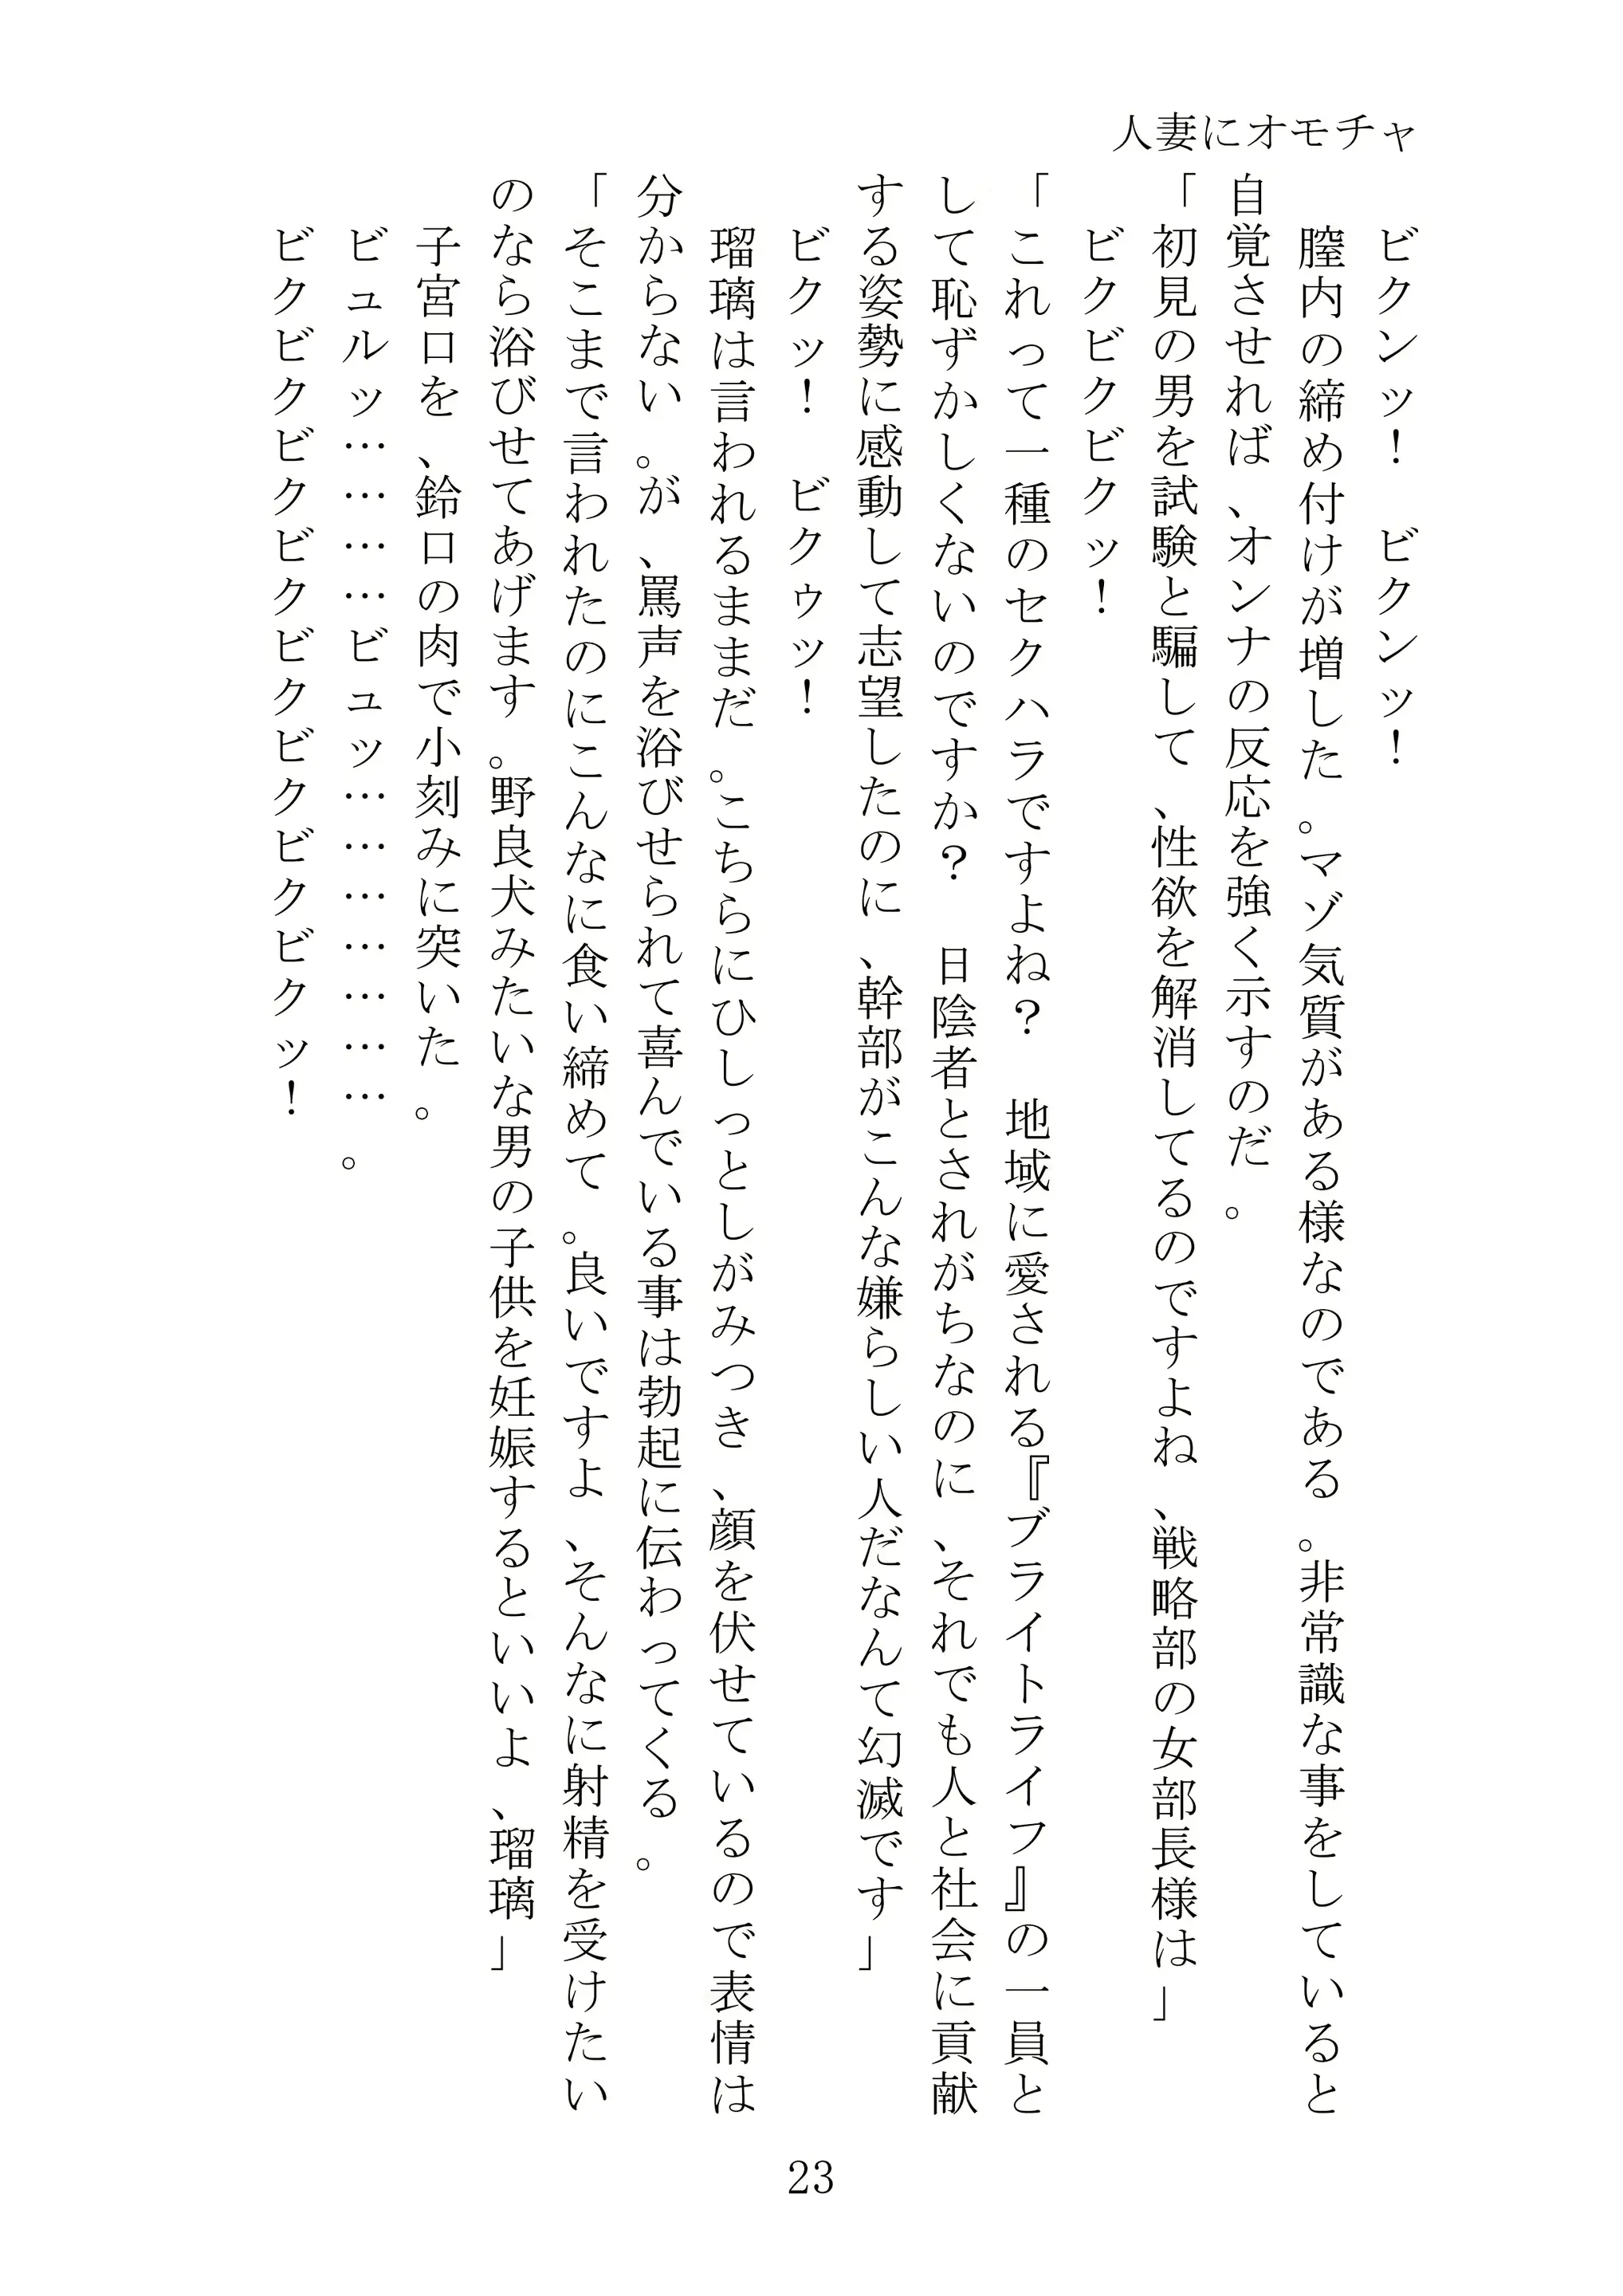 人妻にオモチャ
　ビクンッ！　ビクンッ！
　膣内の締め付けが増した。マゾ気質がある様なのである。非常識な事をしていると
自覚させれば、オンナの反応を強く示すのだ。
「初見の男を試験と騙して、性欲を解消してるのですよね、戦略部の女部長様は」
　ビクビクビクッ！
「これって一種のセクハラですよね？　地域に愛される『ブライトライフ』の一員と
して恥ずかしくないのですか？　日陰者とされがちなのに、それでも人と社会に貢献
する姿勢に感動して志望したのに、幹部がこんな嫌らしい人だなんて幻滅です」
　ビクッ！　ビクゥッ！
　瑠璃は言われるままだ。こちらにひしっとしがみつき、顔を伏せているので表情は
分からない。が、罵声を浴びせられて喜んでいる事は勃起に伝わってくる。
「そこまで言われたのにこんなに食い締めて。良いですよ、そんなに射精を受けたい
のなら浴びせてあげます。野良犬みたいな男の子供を妊娠するといいよ、瑠璃」
　子宮口を、鈴口の肉で小刻みに突いた。
　ビュルッ…………ビュッ……………………。
　ビクビクビクビクビクビクビクビクッ！
23